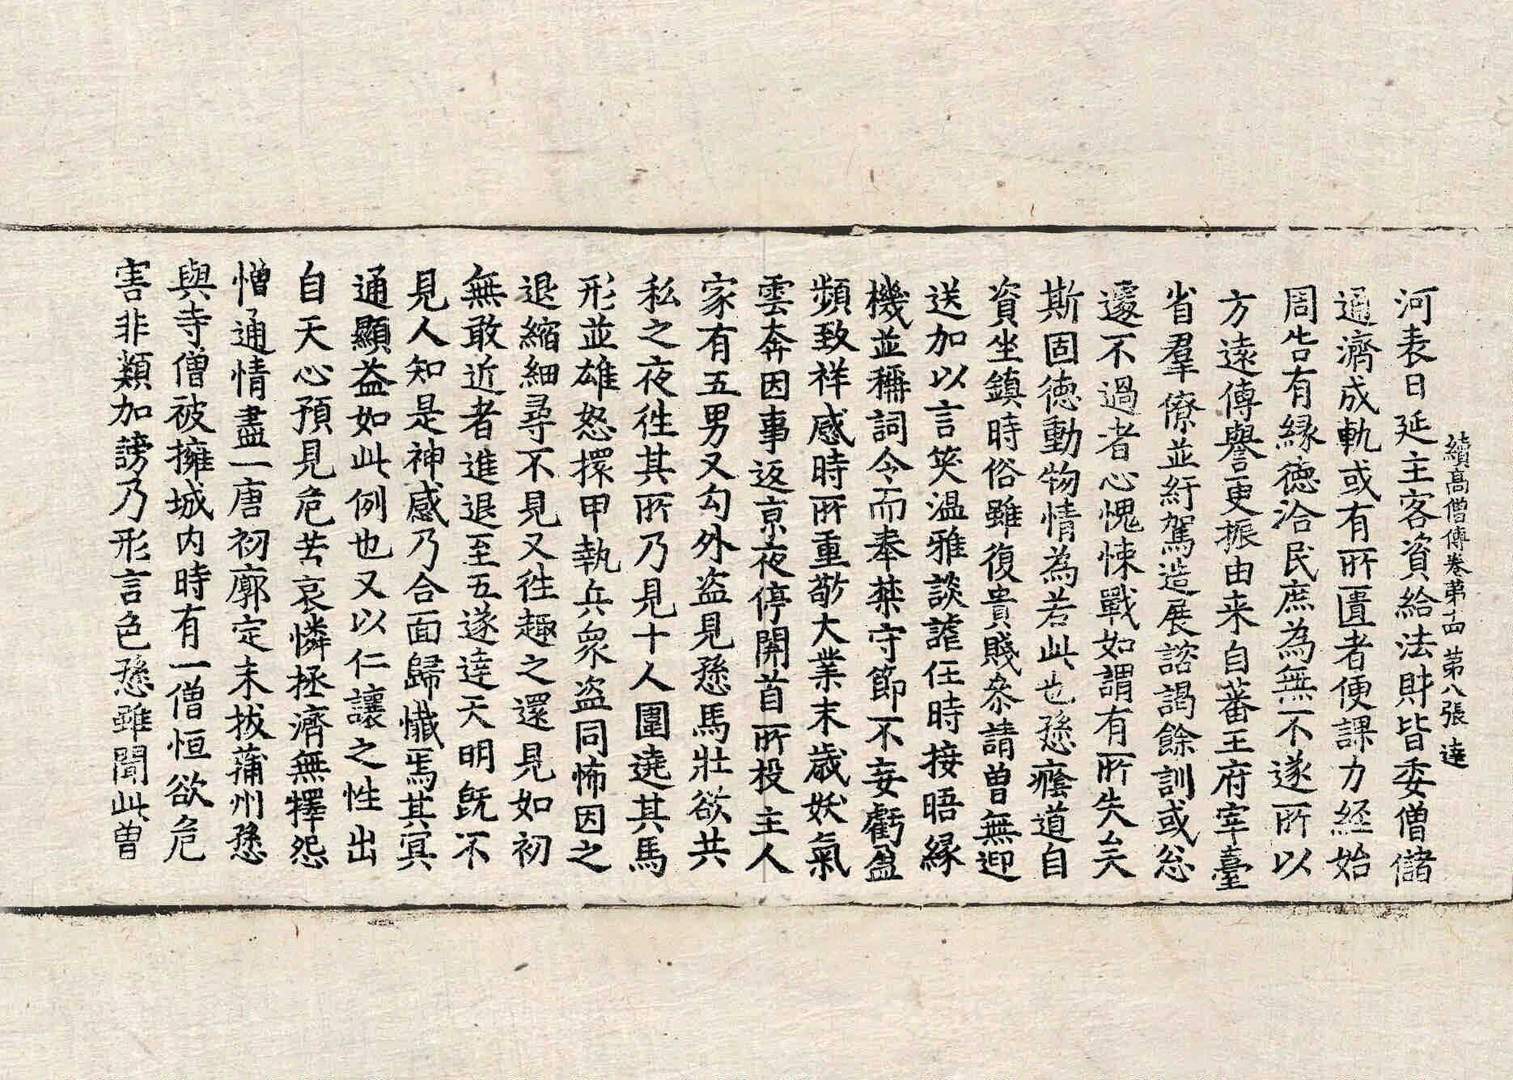 續高僧傳卷第十四 第八張 達
河表日延主客資給法財皆委僧儲
通濟成軌或有所匱者便課力經始
周告有緣德洽民庶為無不遂所以
方遠傳譽更振由来自蕃王府宰臺
省羣僚並紆駕造展諮謁餘訓或忿
遽不過者心愧悚戰如謂有所失矣
斯固德動物情為若此也愻癊道自
資坐鎮時俗雖復貴賤叅請曾無迎
送加以言笑温雅談謔任時接晤緣
機並稱詞令而奉禁守節不妄虧盈
頻致祥感時所重敬大業末歲妖氣
雲奔因事返京夜停開首所投主人
家有五男又勾外盗見愻馬壯欲共
私之夜徃其所乃見十人圍遶其馬
形並雄怒擐甲執兵衆盗同怖因之
退縮細尋不見又徃趣之還見如初
無敢近者進退至五遂達天明既不
見人知是神感乃合面歸懺焉其冥
通顯益如此例也又以仁讓之性出
自天心預見危苦哀憐拯濟無擇怨
憎通情盡一唐初廓定未拔蒲州愻
與寺僧被擁城内時有一僧恒欲危
害非類加謗乃形言色愻雖聞此曾